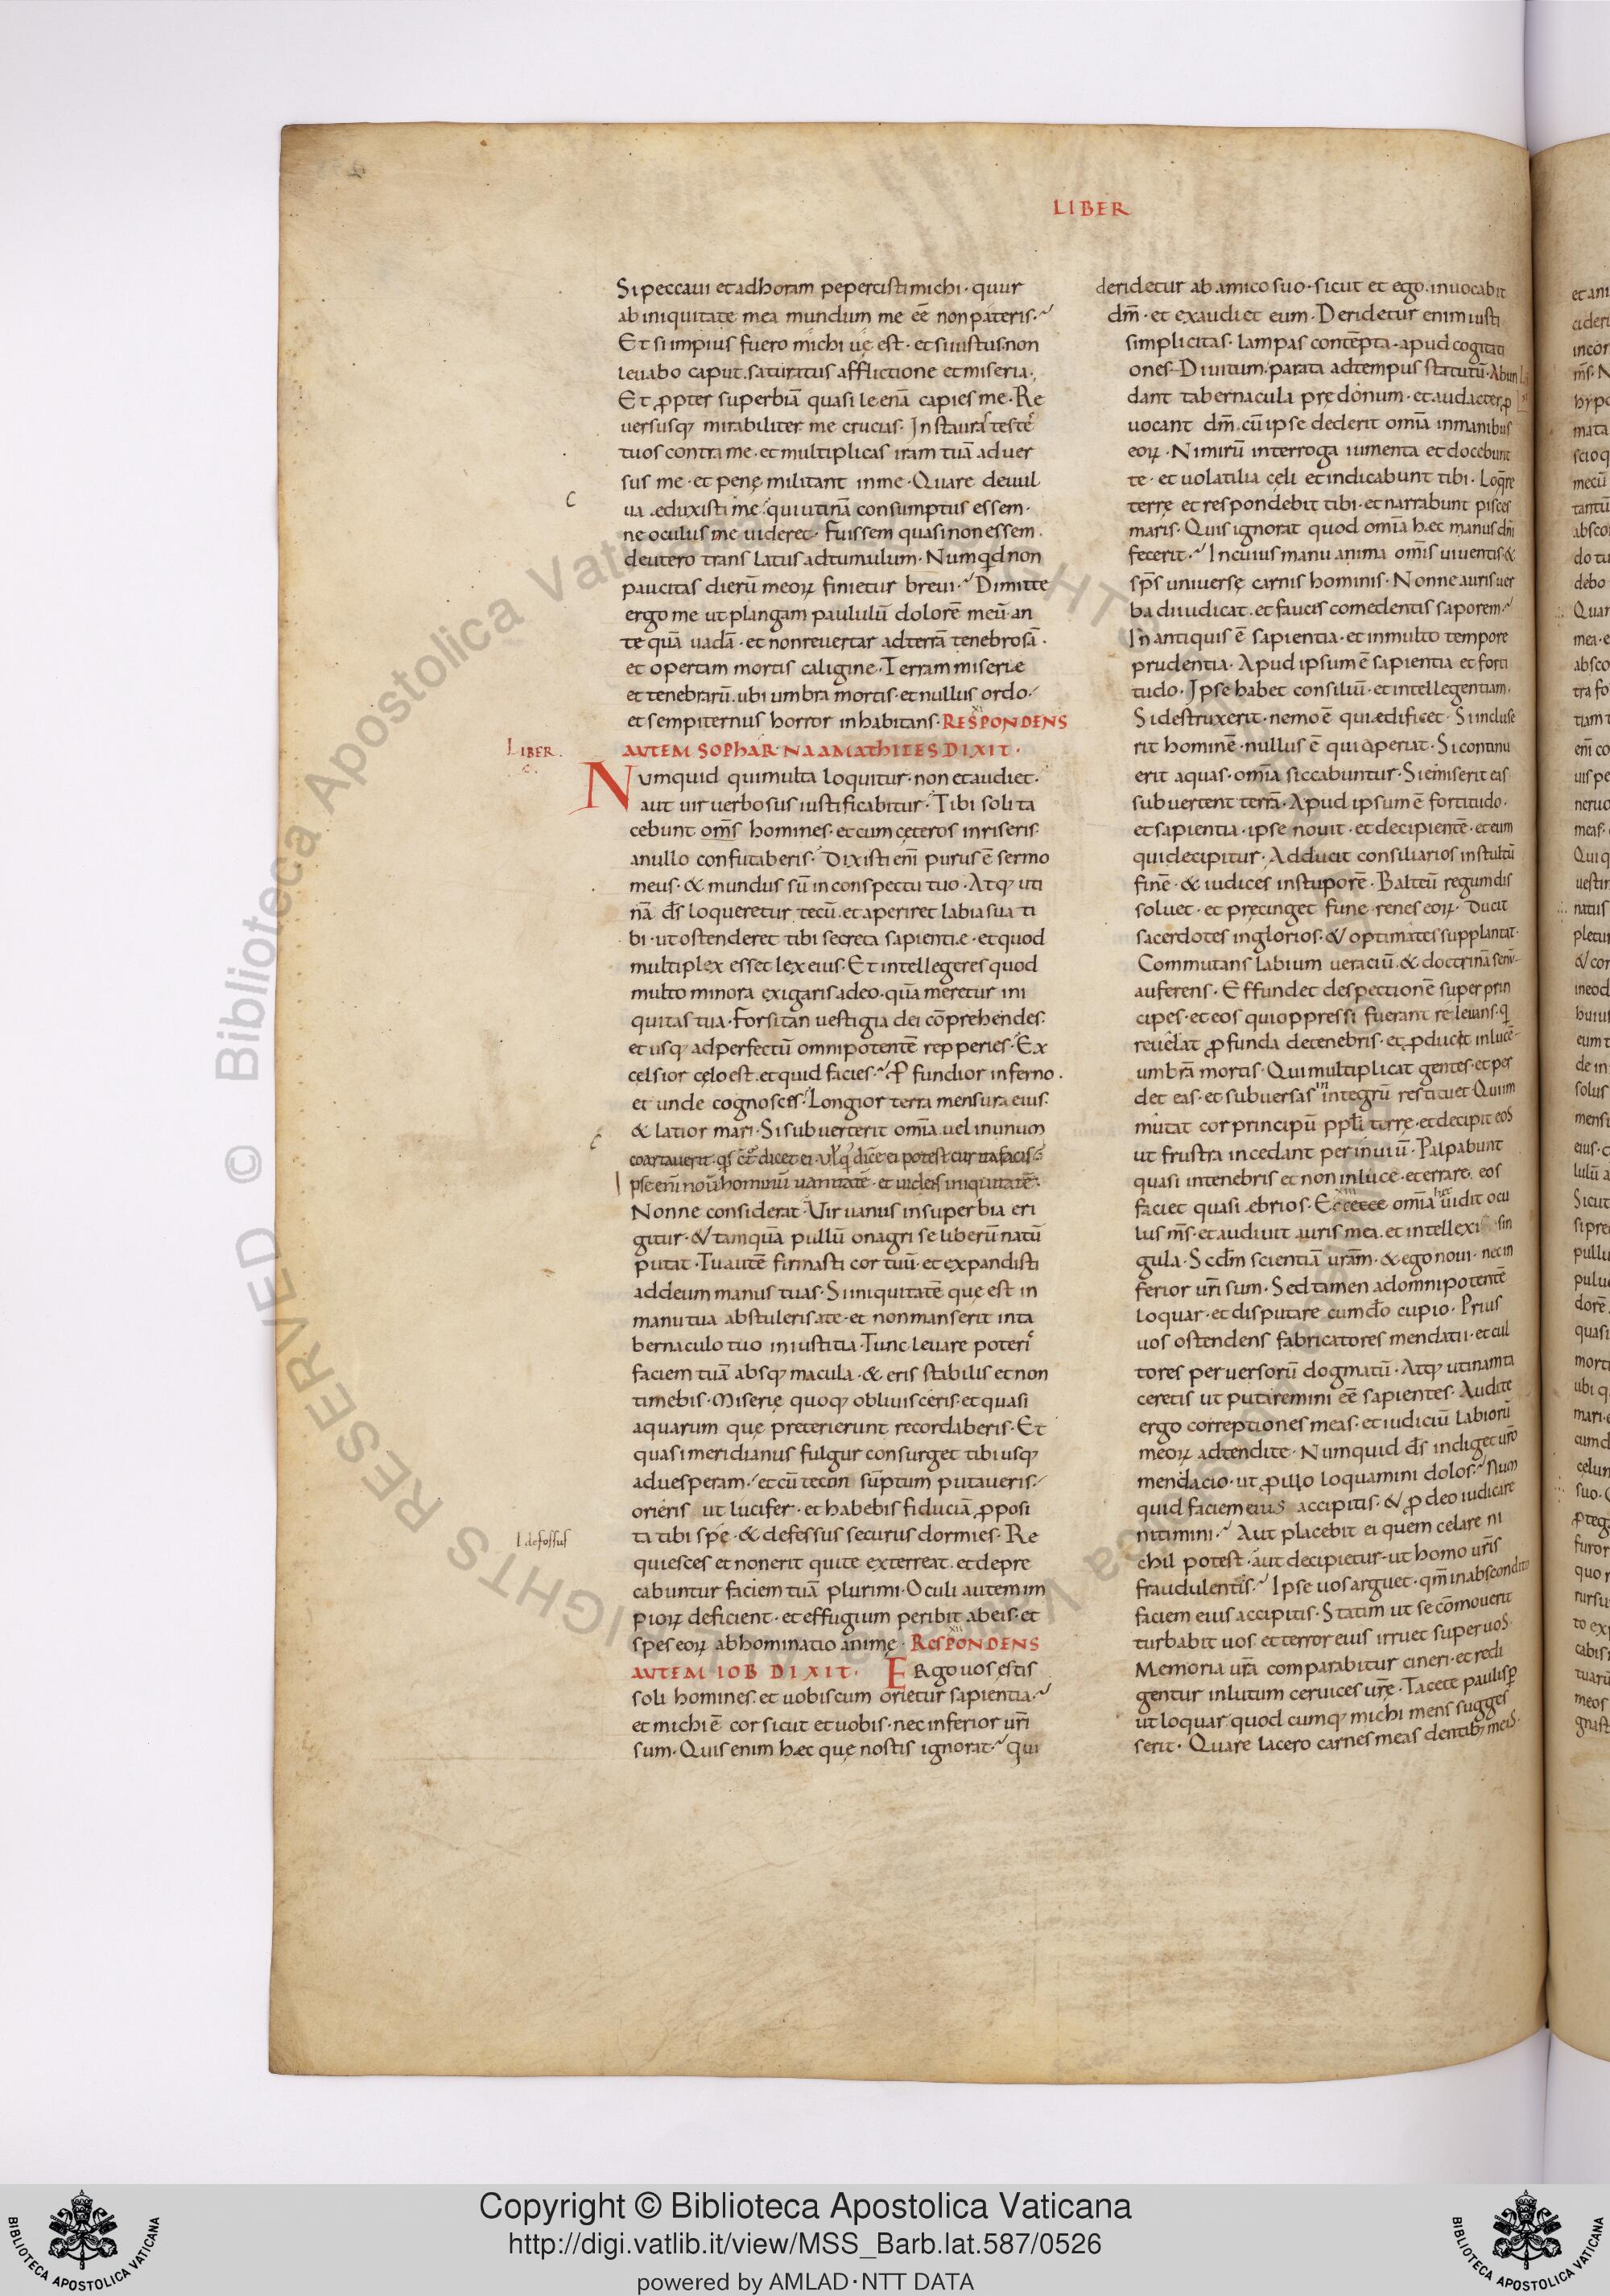 LIBER
Si peccaui et ad horam pepercisti michi · quur
ab iniquitate mea mundum me eē non pateris ·
Et si impius fuero michi uę est · et si iustus non
leuabo caput · saturatus afflictione et miseria ·
Et ꝓpter superbiā quasi leenā capies me · Re
uersusq; mirabiliter me crucias · Instauras testes
tuos contra me · et multiplicas iram tuā aduer
sus me · et penę militant in me · Quare de uul
C
ua eduxisti me · qui utinā consumptus essem ·
ne oculus me uideret · Fuissem quasi non essem ·
de utero translatus ad tumulum · Numqd non
paucitas dierū meoꝝ finietur breui · Dimitte
ergo me ut plangam paululū dolorē meū · an
te quā uadā · et non reuertar ad terrā tenebrosā ·
et opertam mortis caligine · Terram miserie
et tenebrarū · ubi umbra mortis · et nullus ordo ·
et sempiternus horror inhabitans · RESPONDENS
LIBER ·
AUTEM SOPHAR NAAMATHITES DIXIT ·
Numquid qui multa loquitur · non et audiet ·
aut uir uerbosus iustificabitur · Tibi soli ta
cebunt oms̄ homines · et cum ceteros inriseris ·
a nullo confutaberis · Dixisti enī purus ē sermo
meus · & mundus sū in conspectu tuo · Atq; uti
nā ds̄ loqueretur tecū · et aperiret labia sua ti
bi · ut ostenderet tibi secreta sapientie · et quod
multiplex esset lex eius · Et intellegeres quod
multo minora exigaris a deo · quā meretur ini
quitas tua · Forsitan uestigia dei cōprehendes ·
et usq; ad perfectū omnipotentē repperies · Ex
celsior celo est · et quid facies · Ꝓfundior inferno ·
et unde cognosces · Longior terra mensura eius ·
& latior mari · Si subuerterit omīa · uel in unum
coartauerit · qs ct̄ dicet ei · ul' q dicē ei potest cur ita facis ·
Ipse enī nouit hominū uanitatē · et uidens iniquitatē ·
Nonne considerat · Uir uanus in superbia eri
gitur · & tamquā pullū onagri se liberū natū
putat · Tu autē firmasti cor tuū · et expandisti
ad deum manus tuas · Si iniquitatē quę est in
manu tua abstuleris a te · et non manserit in ta
bernaculo tuo iniustitia · Tunc leuare poteris
faciem tuā absq; macula · & eris stabilis et non
timebis · Miserię quoq; obliuisceris · et quasi
aquarum quę preterierunt recordaberis · Et
quasi meridianus fulgur consurget tibi usq;
ad uesperam · et cū te con sūptum putaueris ·
orieris ut lucifer · et habebis fiduciā ꝓposi
ta tibi spe · & defessus securus dormies · Re
l defossus
quiesces et non erit qui te exterreat · et depre
cabuntur faciem tuā plurimi · Oculi autem im
pioꝝ deficient · et effugium peribit ab eis · et
spes eoꝝ abhominatio animę · RESPONDENS
AUTEM IOB DIXIT · Ergo uos estis
soli homines · et uobiscum orietur sapientia ·
et michi ē cor sicut et uobis · nec inferior urī
sum · Quis enim hæc quę nostis ignorat · qui
deridetur ab amico suo · sicut et ego · inuocabit
dm̄ · et exaudiet eum · Deridetur enim iusti
simplicitas · lampas contēpta · apud cogitati
ones · Diuitum · parata ad tempus statutū · Abun
dant tabernacula prędonum · et audacter ꝓ
uocant dm̄ · cū ipse dederit omīa in manibus
eoꝝ · Nimirū interroga iumenta et docebunt
te · et uolatilia cęli et indicabunt tibi · Loqre
terrę et respondebit tibi · et narrabunt pisces
maris · Quis ignorat quod omīa hæc manus dnī
fecerit · In cuius manu anima omīs uiuentis · &
sps̄ uniuersę carnis hominis · Nonne auris uer
ba diiudicat · et faucis comedentis saporem ·
In antiquis ē sapientia · et in multo tempore
prudentia · Apud ipsum ē sapientia et forti
tudo · Ipse habet consiliū · et intellegentiam ·
Si destruxerit · nemo ē qui ædificet · Si incluse
rit hominē · nullus ē qui aperiat · Si continu
erit aquas · omīa siccabuntur · Si emiserit eas
subuertent terrā · Apud ipsum ē fortitudo ·
et sapientia · ipse nouit · et decipientē · et eum
qui decipitur · Adducit consiliarios in stultū
finē · & iudices in stuporē · Balteū regum dis
soluet · et pręcinget fune renes eoꝝ · Ducit
sacerdotes inglorios · & optimates supplantat ·
Commutans labium ueraciū · & doctrinā senū
auferens · Effundet despectionē super prin
cipes · et eos qui oppressi fuerant releuans · q
reuelat ꝓfunda de tenebris · et ꝓducit in lucē
umbrā mortis · Qui multiplicat gentes · et per
det eas · et subuersas in integrū restituet · Qui im
mutat cor principū ppli terrę · et decipit eos
ut frustra incedant per inuiū · Palpabunt
quasi in tenebris et non in luce · et errare eos
faciet quasi ebrios · Ecce omīa hæc uidit ocu
lus ms̄ · et audiuit auris mea · et intellexi sin
gula · Scdm̄ scientiā uram̄ · & ego noui · nec in
ferior urī sum · Sed tamen ad omnipotentē
loquar · et disputare cum dō cupio · Prius
uos ostendens fabricatores mendatii · et cul
tores peruersorū dogmatū · Atq; utinam ta
ceretis ut putaremini eē sapientes · Audite
ergo correptiones meas · et iudiciū labiorū
meoꝝ adtendite · Numquid ds̄ indiget uro
mendacio · ut ꝓ illo loquamini dolos · Num
quid faciem eius accipitis · & ꝓ deo iudicare
nitimini · Aut placebit ei quem celare ni
chil potest · aut decipietur · ut homo urīs
fraudulentis · Ipse uos arguet · qm̄ in abscondito
faciem eius accipitis · Statim ut se cōmouerit
turbabit uos · et terror eius irruet super uos ·
Memoria urā comparabitur cineri · et redi
gentur in lutum ceruices urę · Tacete paulisꝑ
ut loquar quod cumq; michi mens sugges
serit · Quare lacero carnes meas dentib; meis ·
Copyright © Biblioteca Apostolica Vaticana
http://digi.vatlib.it/view/MSS_Barb.lat.587/0526
powered by AMLAD·NTT DATA
BIBLIOTECA APOSTOLICA VATICANA
BIBLIOTECA APOSTOLICA VATICANA